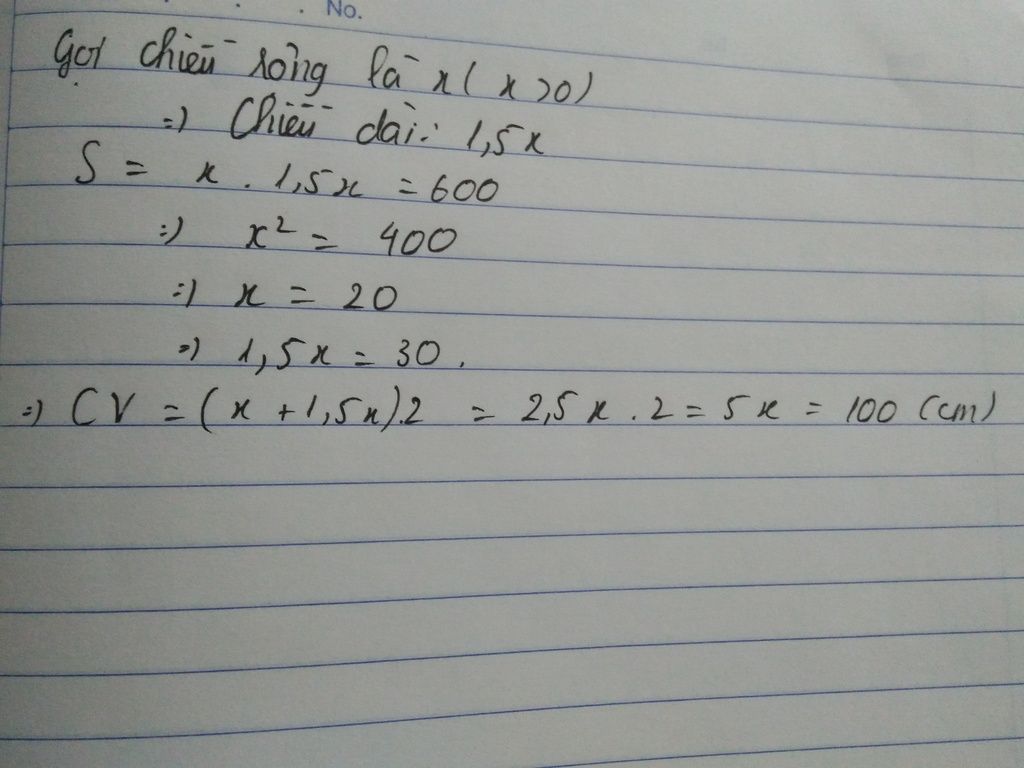 No.
Gọi chiều rộng là x ( x > 0)
=) Chiều dài: 1,5x
S = x . 1,5x = 600
=) x² = 400
=) x = 20
=) 1,5x = 30.
=) CV = (x + 1,5x).2 = 2,5x . 2 = 5x = 100 (cm)